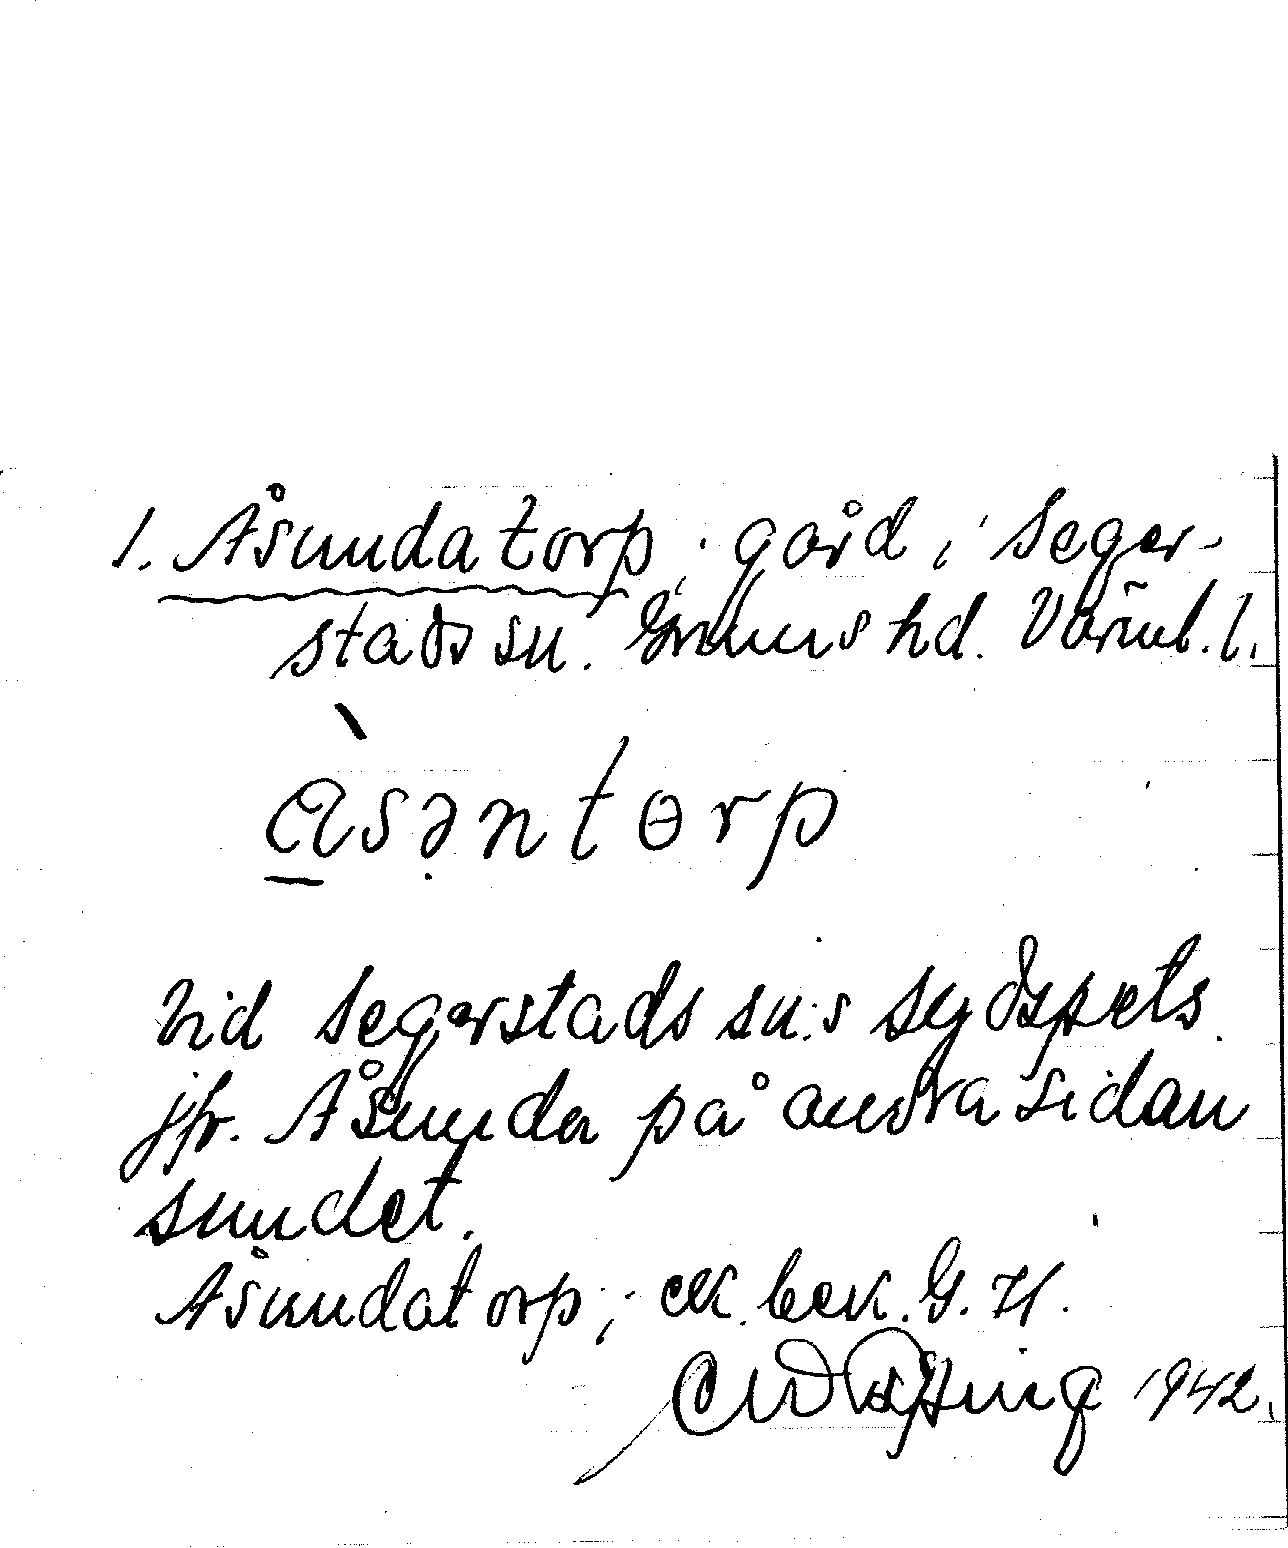 1. Åsundatorp; gård i Seger-
stads sn. Grums hd. Värml. l.
åsəntɵrp
Vid Segerstads sn:s sydspets.
jfr. Åsunda på andra sidan
sundet.
Åsundatorp; ek. bek. G. H.
1942.